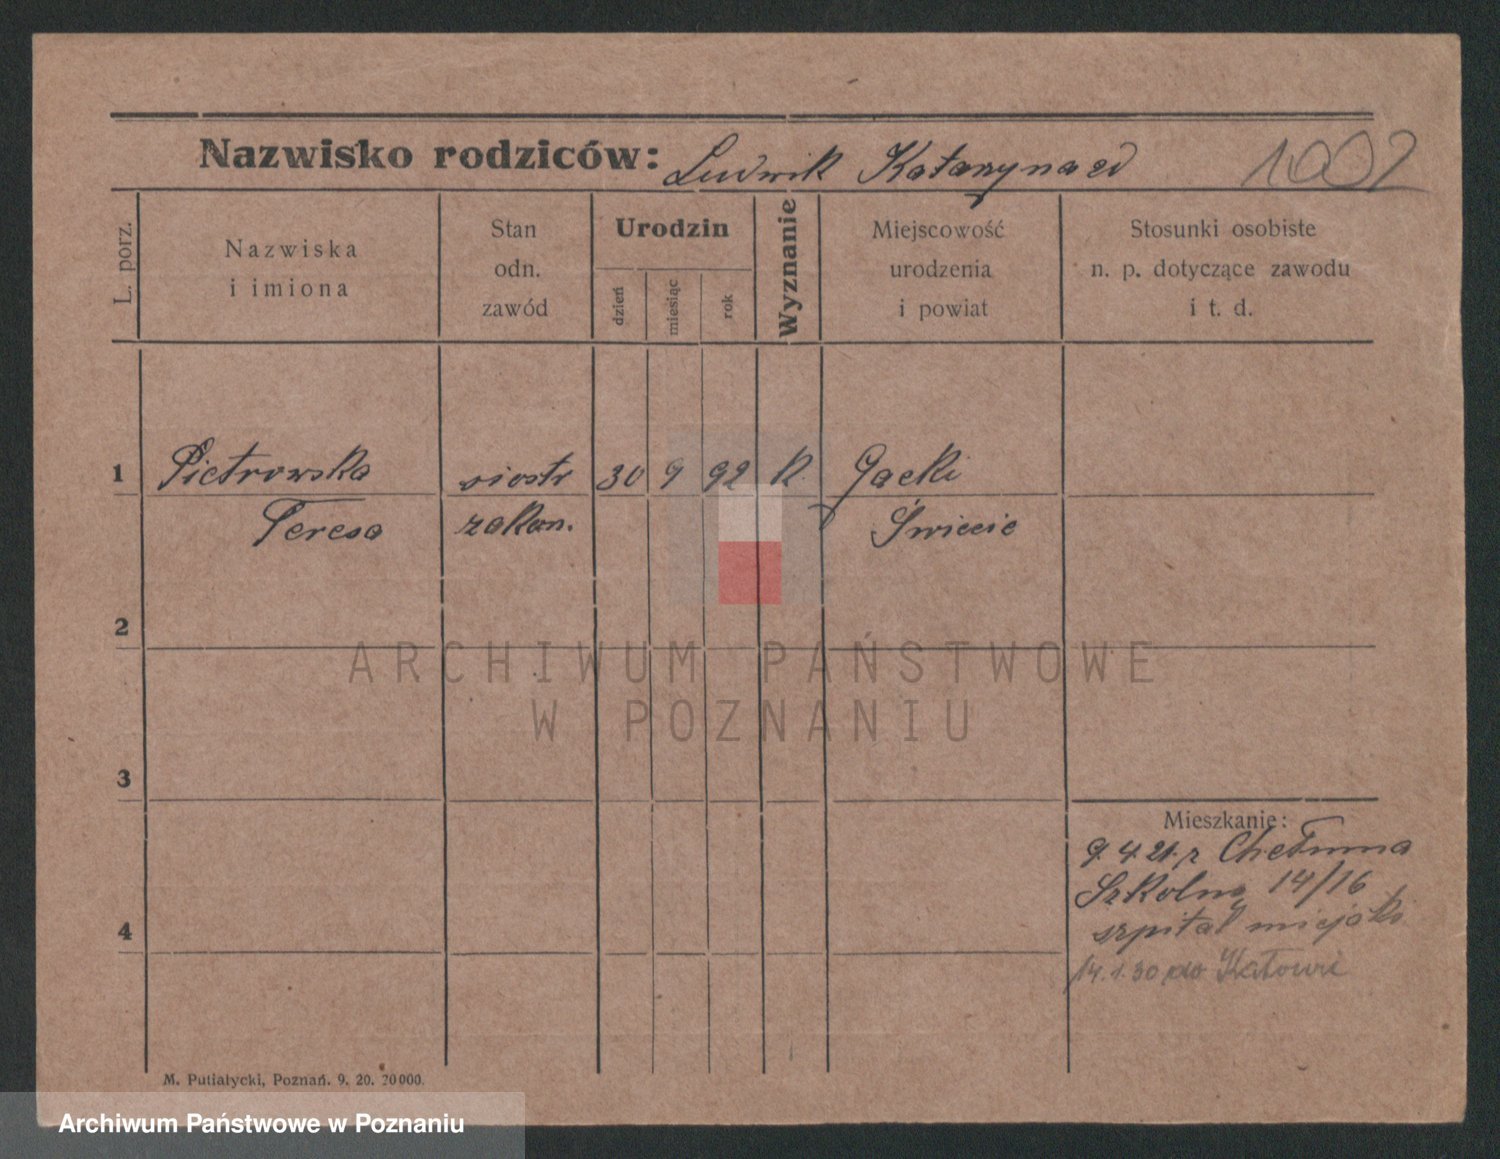 Nazwisko rodziców: Ludwik Katarzyna 1002
L. porz.
Nazwiska
i imiona
Stan
odn.
zawód
Urodzin
dzień
miesiąc
rok
Wyznanie
Miejscowość
urodzenia
i powiat
Stosunki osobiste
n. p. dotyczące zawodu
i t. d.
1 Pietrowska siostr 30 9 92 K. Gacki
Teresa zakon. Świecie
2
3
4
Mieszkanie:
9.4 21. z Chełmna
Szkolna 14/16
szpital miejski
14.1.30 do Katowi
M. Putiatycki, Poznań. 9. 20. 20000.
ARCHIWUM PAŃSTWOWE
W POZNANIU
Archiwum Państwowe w Poznaniu